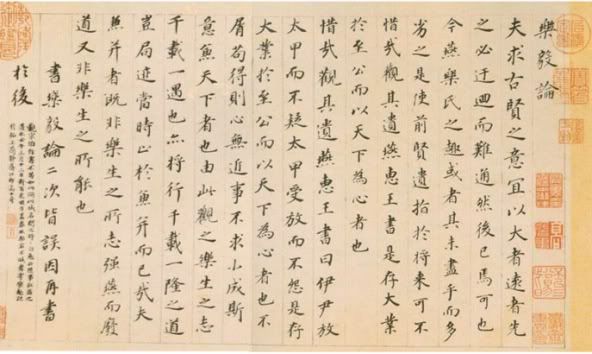 樂毅論
夫求古賢之意宜以大者遠者先
之必迂迴而難通然後已焉可也
今燕樂氏之趣或者其未盡乎而多
劣之是使前賢遺指於將來可不
惜哉觀其遺燕惠王書是存大業
於至公而以天下為心者也
惜哉觀其遺燕惠王書曰伊尹放
太甲而不疑太甲受放而不怨是存
大業於至公而以天下為心者也不
屑苟得則心無近事不求小成斯
意兼天下者也由此觀之樂生之志
千載一遇也亦將行千載一隆之道
豈局迹當時止於兼并而已哉夫
兼并者既非樂生之所志強燕而廢
道又非樂生之所能也
書樂毅論二次皆誤因再書
於後